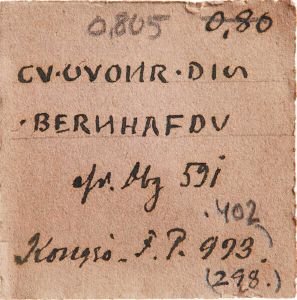 0,805 0,80
CV·OVONR·DIG
·BERNHAFDV
cfr. Mz 591
.402
Kongsö. F. P. 993.
(298.)